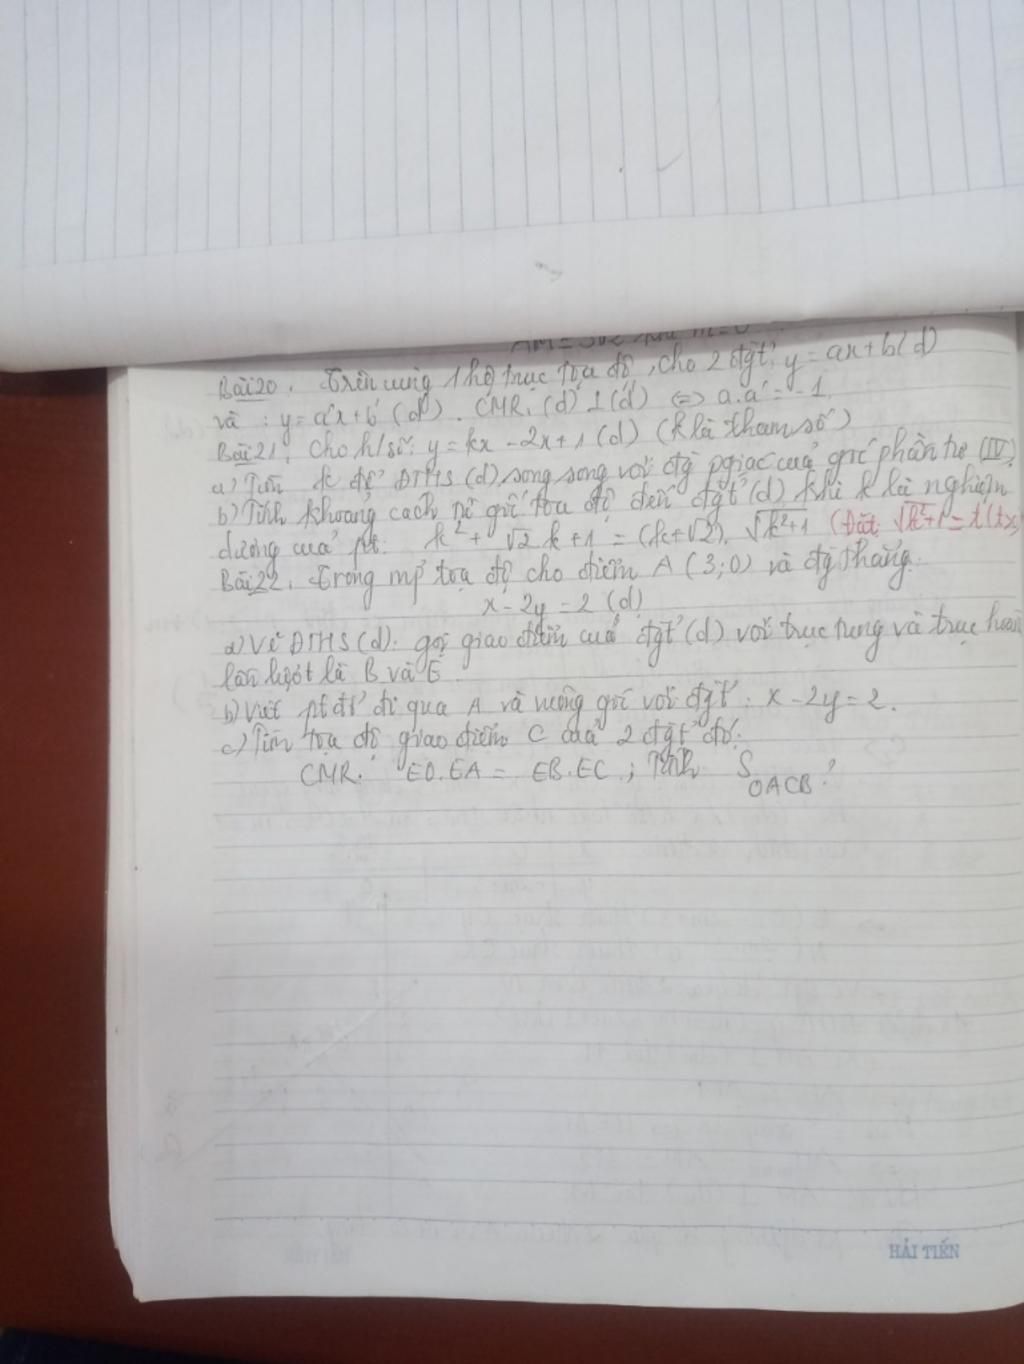 Bài 20. Trên cùng 1 hệ trục tọa độ, cho 2 đgt': y = ax + b (d)
và : y = a'x + b' (d'). CMR: (d) ⊥ (d') <=> a.a' = -1
Bài 21. Cho h/số: y = kx - 2x + 1 (d) (k là tham số)
a) Tìm k để ĐTHS (d) song song với đg pgiác của góc phần tư (IV)
b) Tính khoảng cách từ gốc tọa độ đến đgt' (d) khi k là nghiệm
dương của pt: k² + √2 k + 1 = (k + √2). √k²+1 (Đặt √k²+1 = t (tx
Bài 22. Trong mp' tọa độ cho điểm A (3; 0) và đg thẳng:
x - 2y = 2 (d)
a) Vẽ ĐTHS (d). gọi giao điểm của đgt' (d) với trục tung và trục hoàn
lần lượt là B và E
b) Viết pt đt' đi qua A và vuông góc với đgt': x - 2y = 2.
c) Tìm tọa độ giao điểm C của 2 đgt' đó.
CMR: EO.EA = EB.EC ; Tính S OACB?
HẢI TIẾN